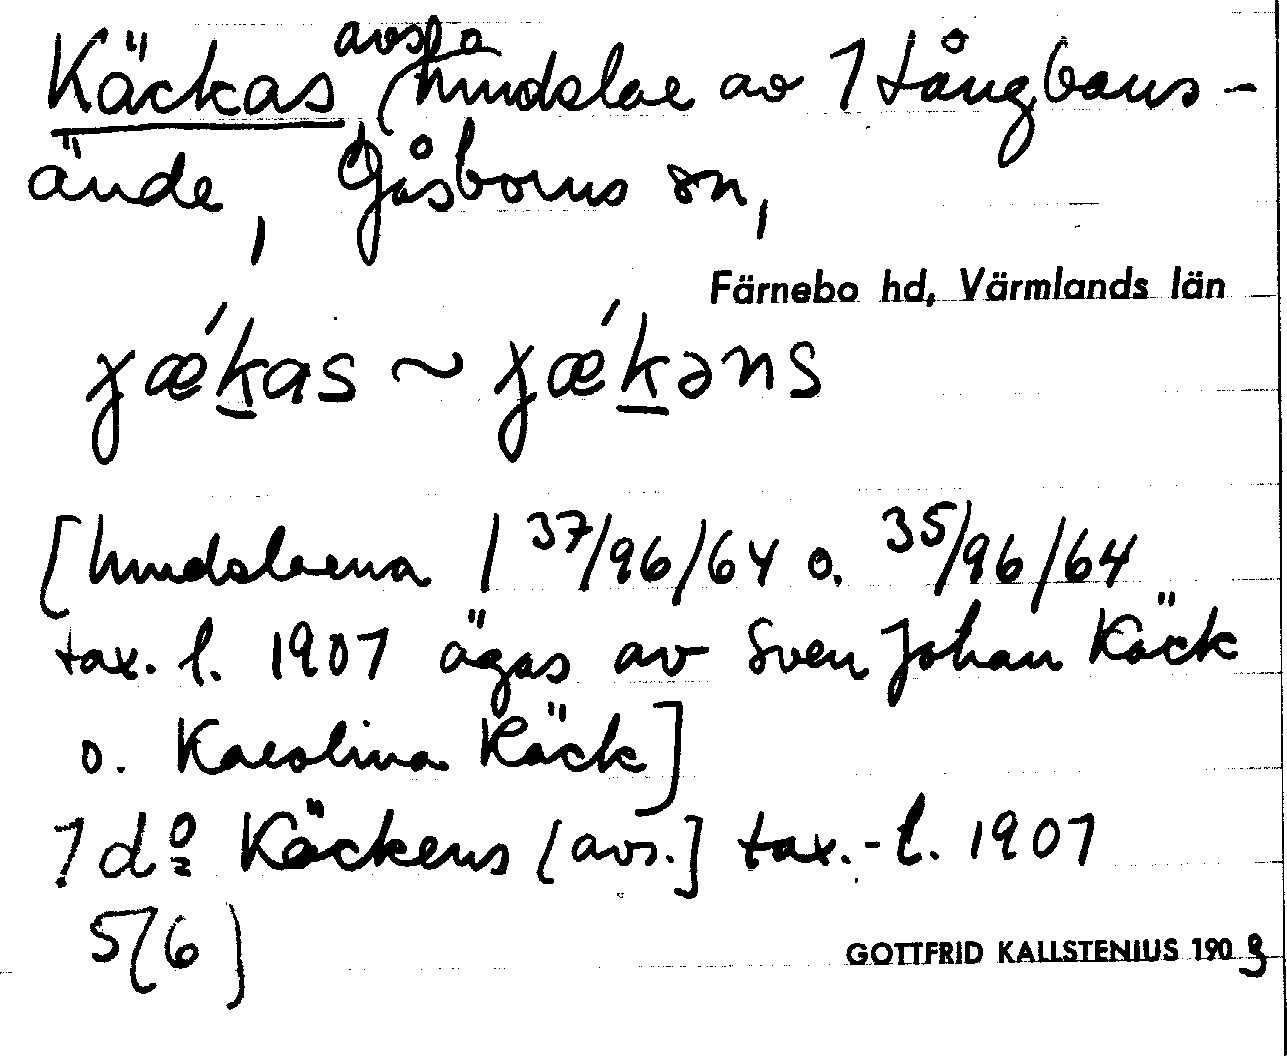 Käckas avs. o. (hmdslar av 1 Långbans-
ände, Gåsborns sn,
Färnebo hd, Värmlands län
ɟǽkas ~ ɟǽkəns
[hmdslarna 1 37/96/64 o. 35/96/64
tax. l. 1907 ägas av Sven Johan Käck
o. Karolina Käck]
1 do Käckens [avs.] tax.-l. 1907
5(6)
GOTTFRID KALLSTENIUS 1909